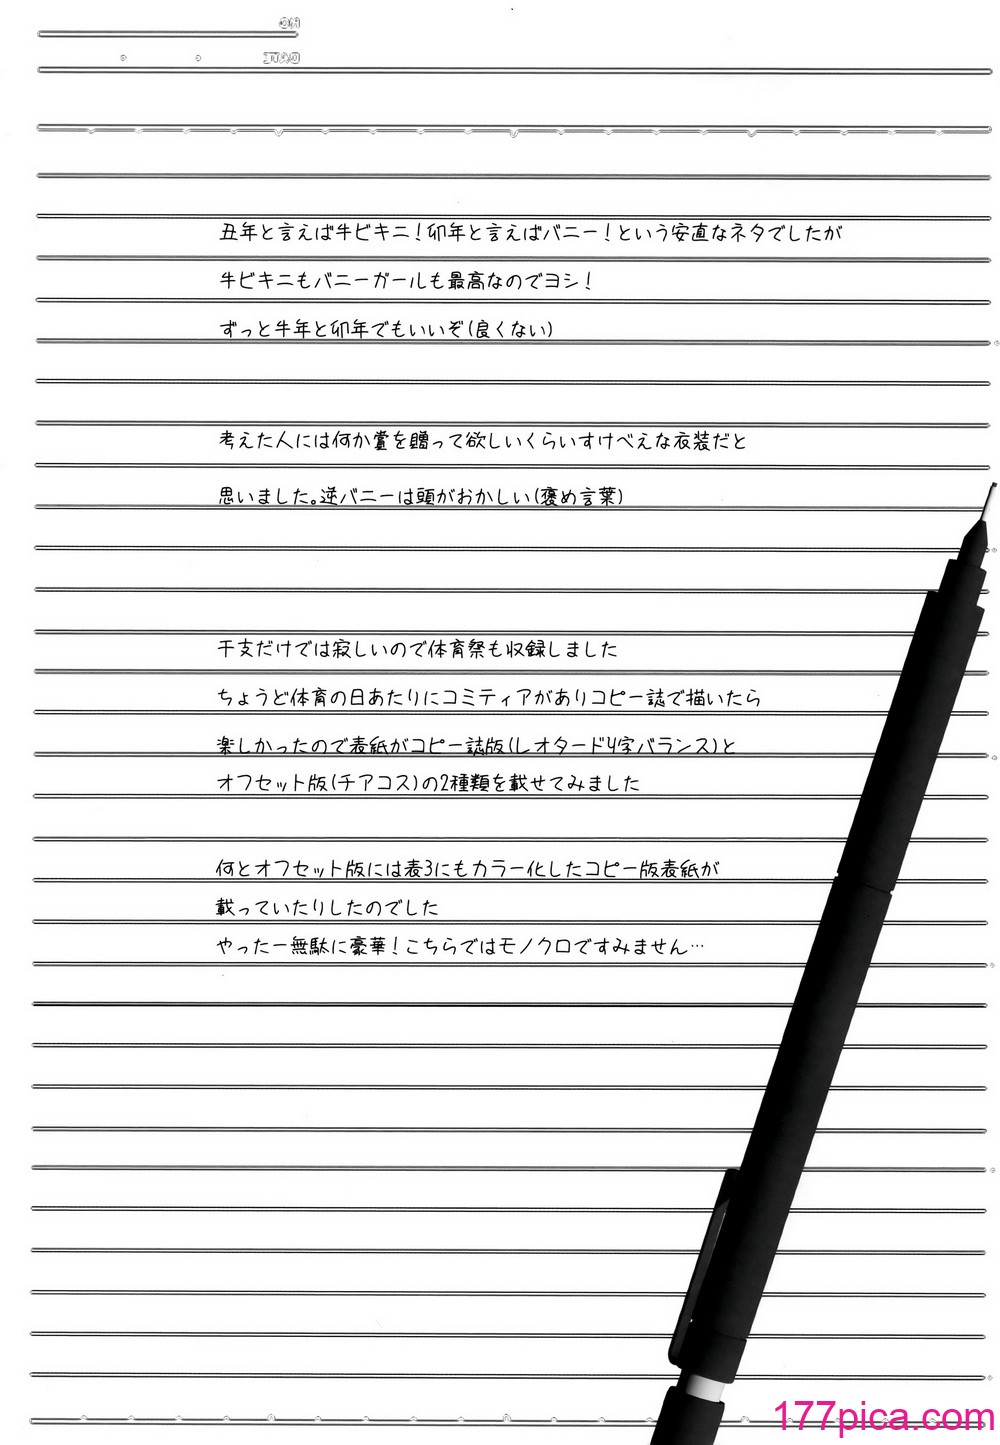 NO.
DATE
丑年と言えば牛ビキニ！卯年と言えばバニー！という安直なネタでしたが
牛ビキニもバニーガールも最高なのでヨシ！
ずっと牛年と卯年でもいいぞ(良くない)
考えた人には何か賞を贈って欲しいくらいすけべえな衣装だと
思いました。逆バニーは頭がおかしい(褒め言葉)
干支だけでは寂しいので体育祭も収録しました
ちょうど体育の日あたりにコミティアがありコピー誌で描いたら
楽しかったので表紙がコピー誌版(レオタードY字バランス)と
オフセット版(チアコス)の2種類を載せてみました
何とオフセット版には表3にもカラー化したコピー版表紙が
載っていたりしたのでした
やったー無駄に豪華！こちらではモノクロですみません…
177pica.com